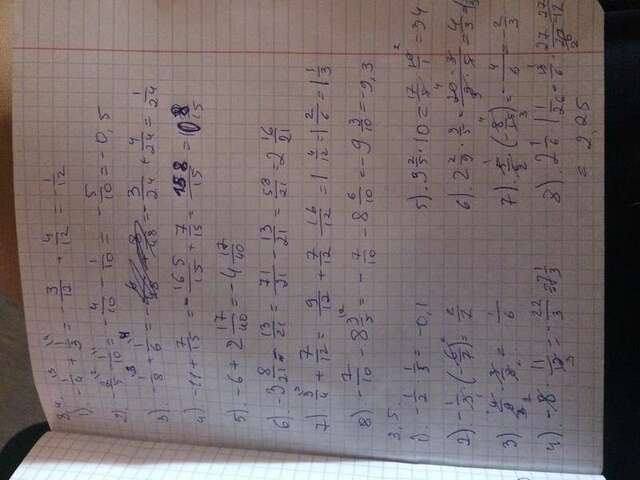 3.4.
1) -1/4 + 1/3 = -3/12 + 4/12 = -1/12
2) -2/5 - 1/10 = -4/10 - 1/10 = -5/10 = -0,5
3) -1/8 + 1/6 = -3/24 + 4/24 = 1/24
4) -11 + 7/15 = -165/15 + 7/15 = 158/15 = 10 8/15
5). -6 + 2 17/40 = -4 17/40
6). -3 8/21 - 13/21 = 71/21 - 13/21 = 58/21 = 2 16/21
7) 3/4 + 7/12 = 9/12 + 7/12 = 16/12 = 1 4/12 = 1 2/6 = 1 1/3
8) -7/10 - 8 3/5 = -7/10 - 8 6/10 = -9 3/10 = -9,3
3.5.
1). -1/2 · 1/5 = -0,1
2). -1/3 · (-6/7) = 2/7
3) 4/9 · 3/8 = 1/6
4). -8 · 11/12 = -22/3 = 7 1/3
5). 3 2/5 · 10 = 17/5 · 10/1 = 34
6). 2 2/9 · 3/5 = 20/9 · 3/5 = 4/3 =
7). 5/2 · (-8/15) = -4/6 = -2/3
8). 2 1/6 · 1 1/26 = 13/6 · 27/26 = 27/12
= 2,25